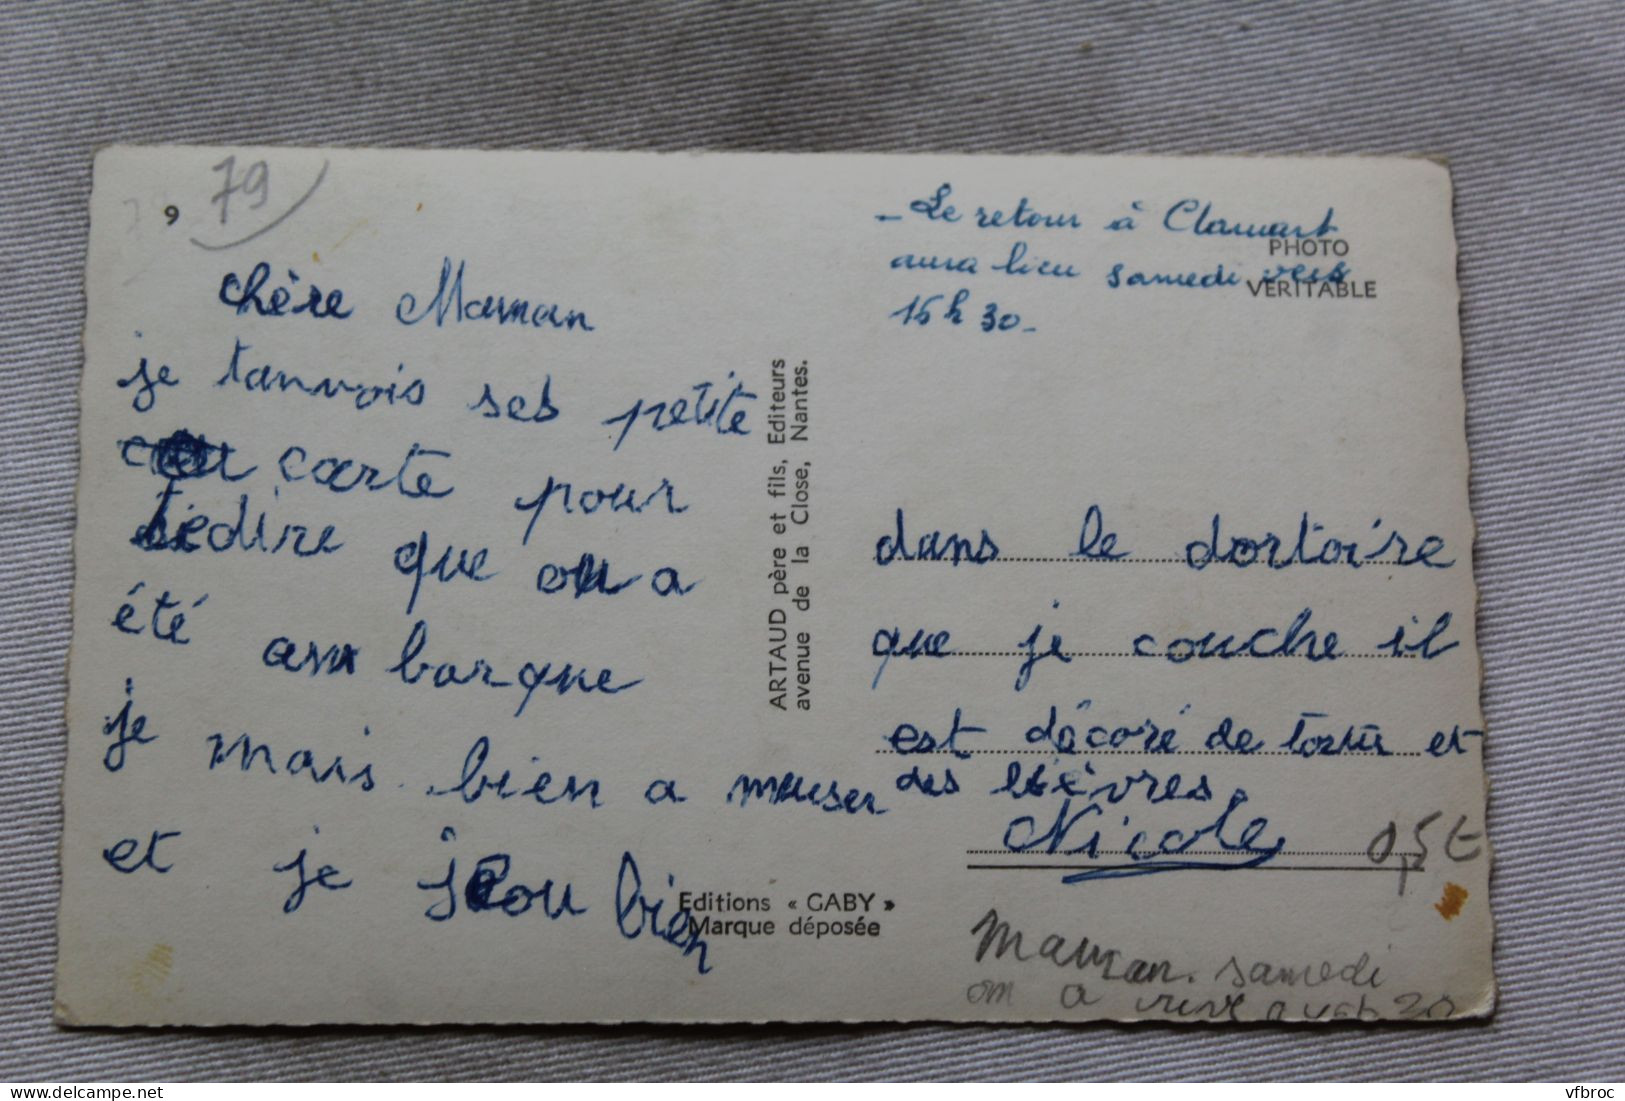 9
79
chère Maman
je tanvois ses petite
carte pour
tedire que on a
été am barque
je mais bien a muser
et je jou bien
ARTAUD père et fils, Editeurs
avenue de la Close, Nantes.
Editions « GABY »
Marque déposée
- Le retour à Clamart
aura lieu samedi vers
16 h 30 -
PHOTO
VERITABLE
dans le dortoire
que je couche il
est décoré de tortu et
des lièvres.
Nicole
0,5 €
Maman. samedi
on a
vfbroc